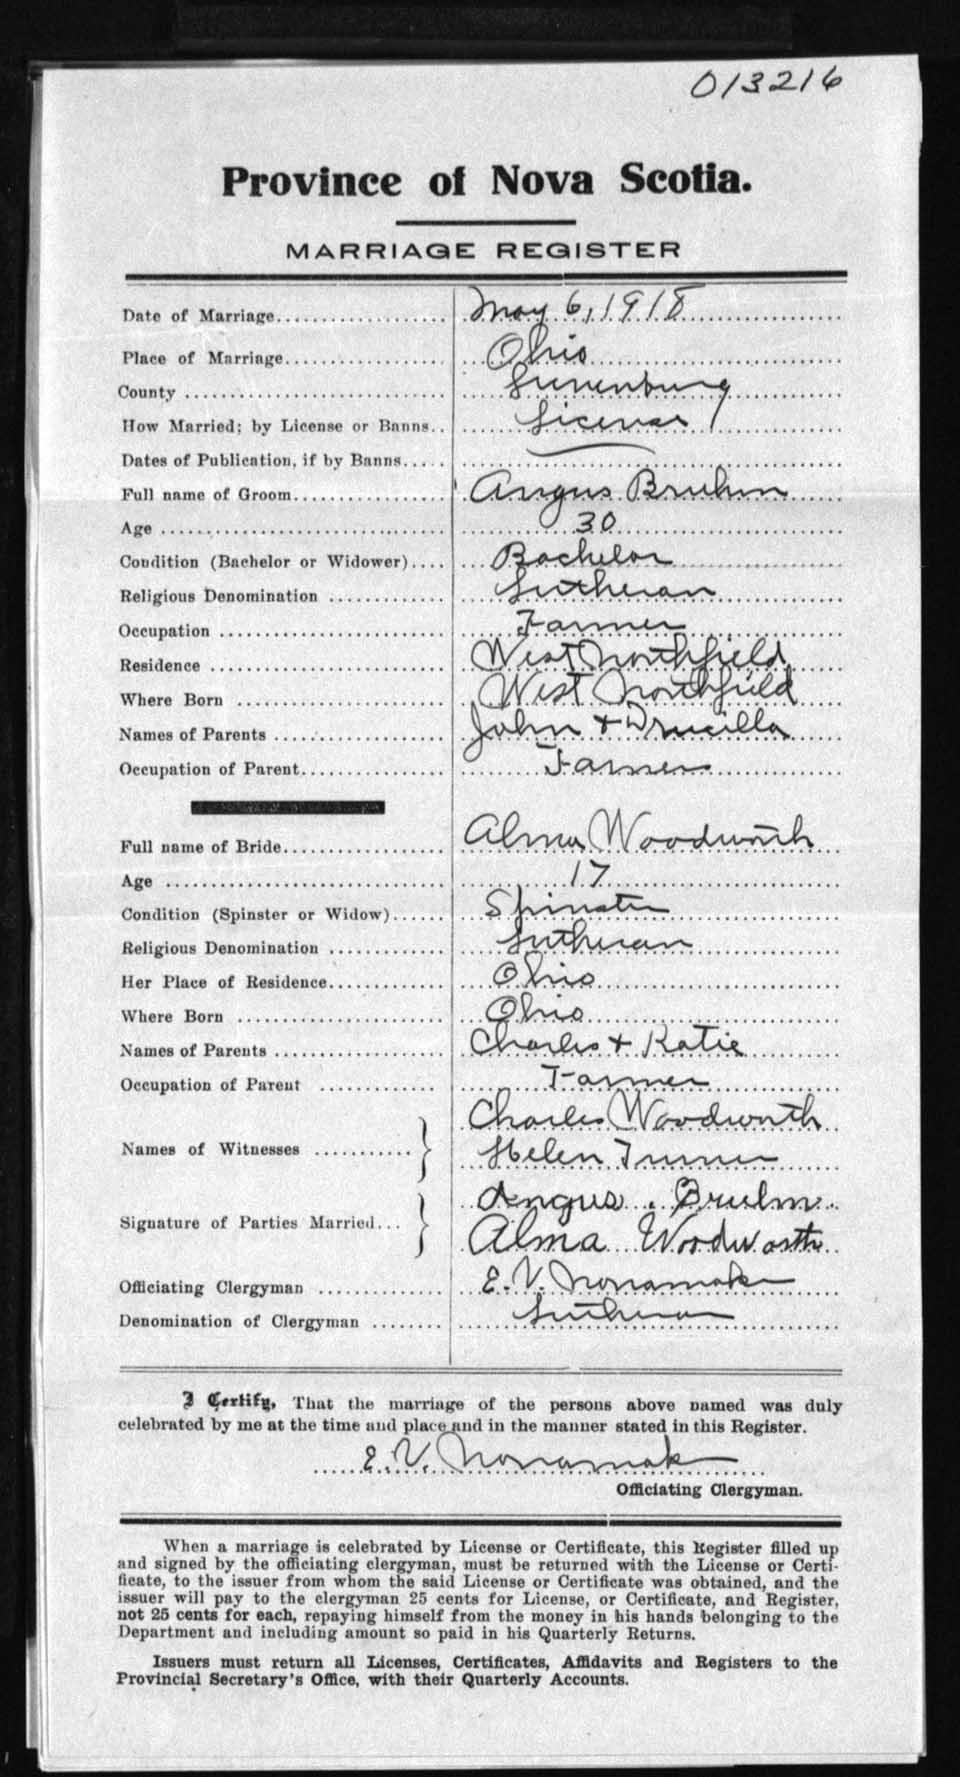 013216
Province of Nova Scotia.
MARRIAGE REGISTER
Date of Marriage.................... May 6, 1918
Place of Marriage.................. Ohio
County ............................. Lunenburg
How Married; by License or Banns.. License
Dates of Publication, if by Banns.....
Full name of Groom................ Angus Bruhm
Age ................................ 30
Condition (Bachelor or Widower).... Bachelor
Religious Denomination ............. Lutheran
Occupation ......................... Farmer
Residence .......................... West Northfield
Where Born ........................ West Northfield
Names of Parents .................. John + Drucilla
Occupation of Parent................ Farmer
Full name of Bride.................. Alma Woodworth
Age ............................... 17
Condition (Spinster or Widow)...... Spinster
Religious Denomination ............. Lutheran
Her Place of Residence............. Ohio
Where Born ........................ Ohio
Names of Parents ................... Charles + Katie
Occupation of Parent ............. Farmer
Names of Witnesses ........... Charles Woodworth
Helen Turner
Signature of Parties Married... Angus. Bruhm.
Alma Woodworth
Officiating Clergyman .............. E. V. Nonamaker
Denomination of Clergyman ........ Lutheran
I Certify, That the marriage of the persons above named was duly
celebrated by me at the time and place and in the manner stated in this Register.
E. V. Nonamaker
Officiating Clergyman.
When a marriage is celebrated by License or Certificate, this Register filled up
and signed by the officiating clergyman, must be returned with the License or Certi-
ficate, to the issuer from whom the said License or Certificate was obtained, and the
issuer will pay to the clergyman 25 cents for License, or Certificate, and Register,
not 25 cents for each, repaying himself from the money in his hands belonging to the
Department and including amount so paid in his Quarterly Returns.
Issuers must return all Licenses, Certificates, Affidavits and Registers to the
Provincial Secretary's Office, with their Quarterly Accounts.